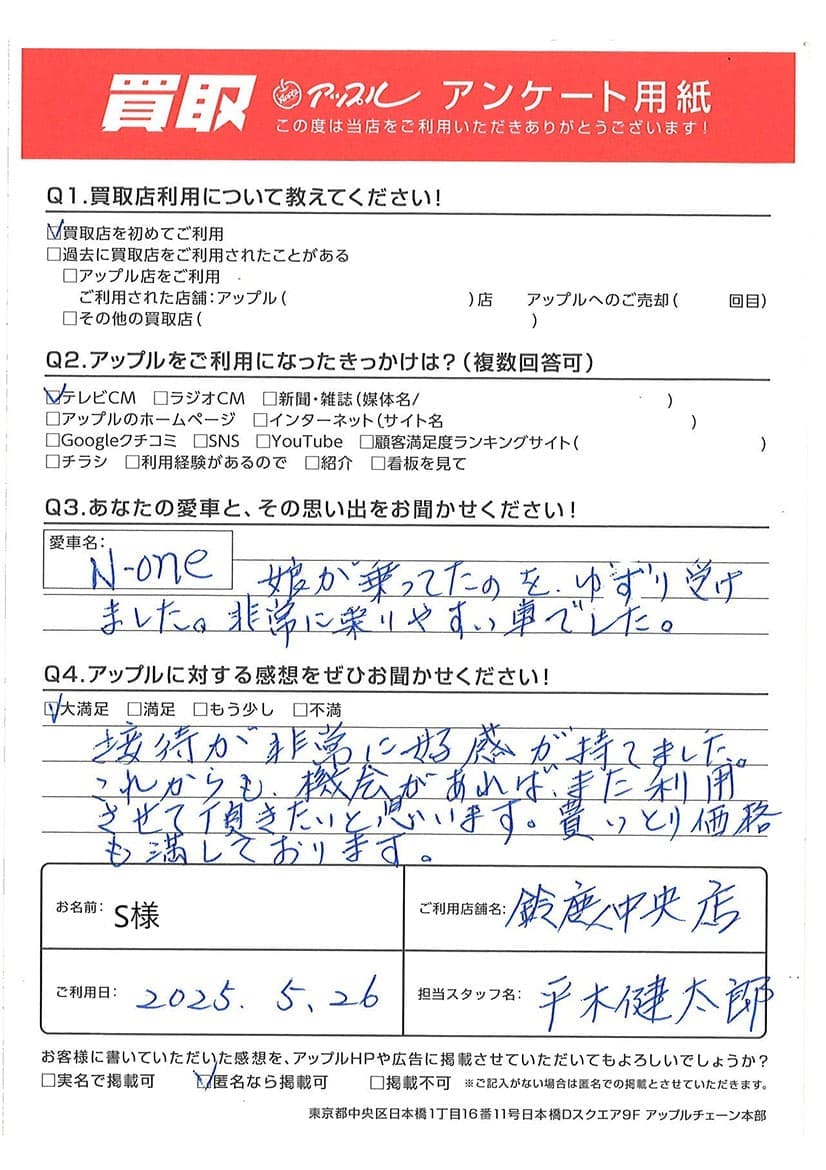 買取 Apple アップル アンケート用紙
この度は当店をご利用いただきありがとうございます!
Q1.買取店利用について教えてください!
☑買取店を初めてご利用
□過去に買取店をご利用されたことがある
□アップル店をご利用
ご利用された店舗:アップル( )店 アップルへのご売却( 回目)
□その他の買取店( )
Q2.アップルをご利用になったきっかけは?(複数回答可)
☑テレビCM □ラジオCM □新聞・雑誌(媒体名/ )
□アップルのホームページ □インターネット(サイト名 )
□Googleクチコミ □SNS □YouTube □顧客満足度ランキングサイト( )
□チラシ □利用経験があるので □紹介 □看板を見て
Q3.あなたの愛車と、その思い出をお聞かせください!
愛車名:
N-one 娘が乗ってたのを、ゆずり受け
ました。非常に乗りやすい車でした。
Q4.アップルに対する感想をぜひお聞かせください!
☑大満足 □満足 □もう少し □不満
接待が非常に好感が持てました。
これからも、機会があれば、また利用
させて頂きたいと思います。買いとり価格
も満しております。
お名前: S様 ご利用店舗名: 鈴鹿中央店
ご利用日: 2025. 5. 26 担当スタッフ名: 平木健太郎
お客様に書いていただいた感想を、アップルHPや広告に掲載させていただいてもよろしいでしょうか?
□実名で掲載可 ☑匿名なら掲載可 □掲載不可 ※ご記入がない場合は匿名での掲載とさせていただきます。
東京都中央区日本橋1丁目16番11号日本橋Dスクエア9F アップルチェーン本部